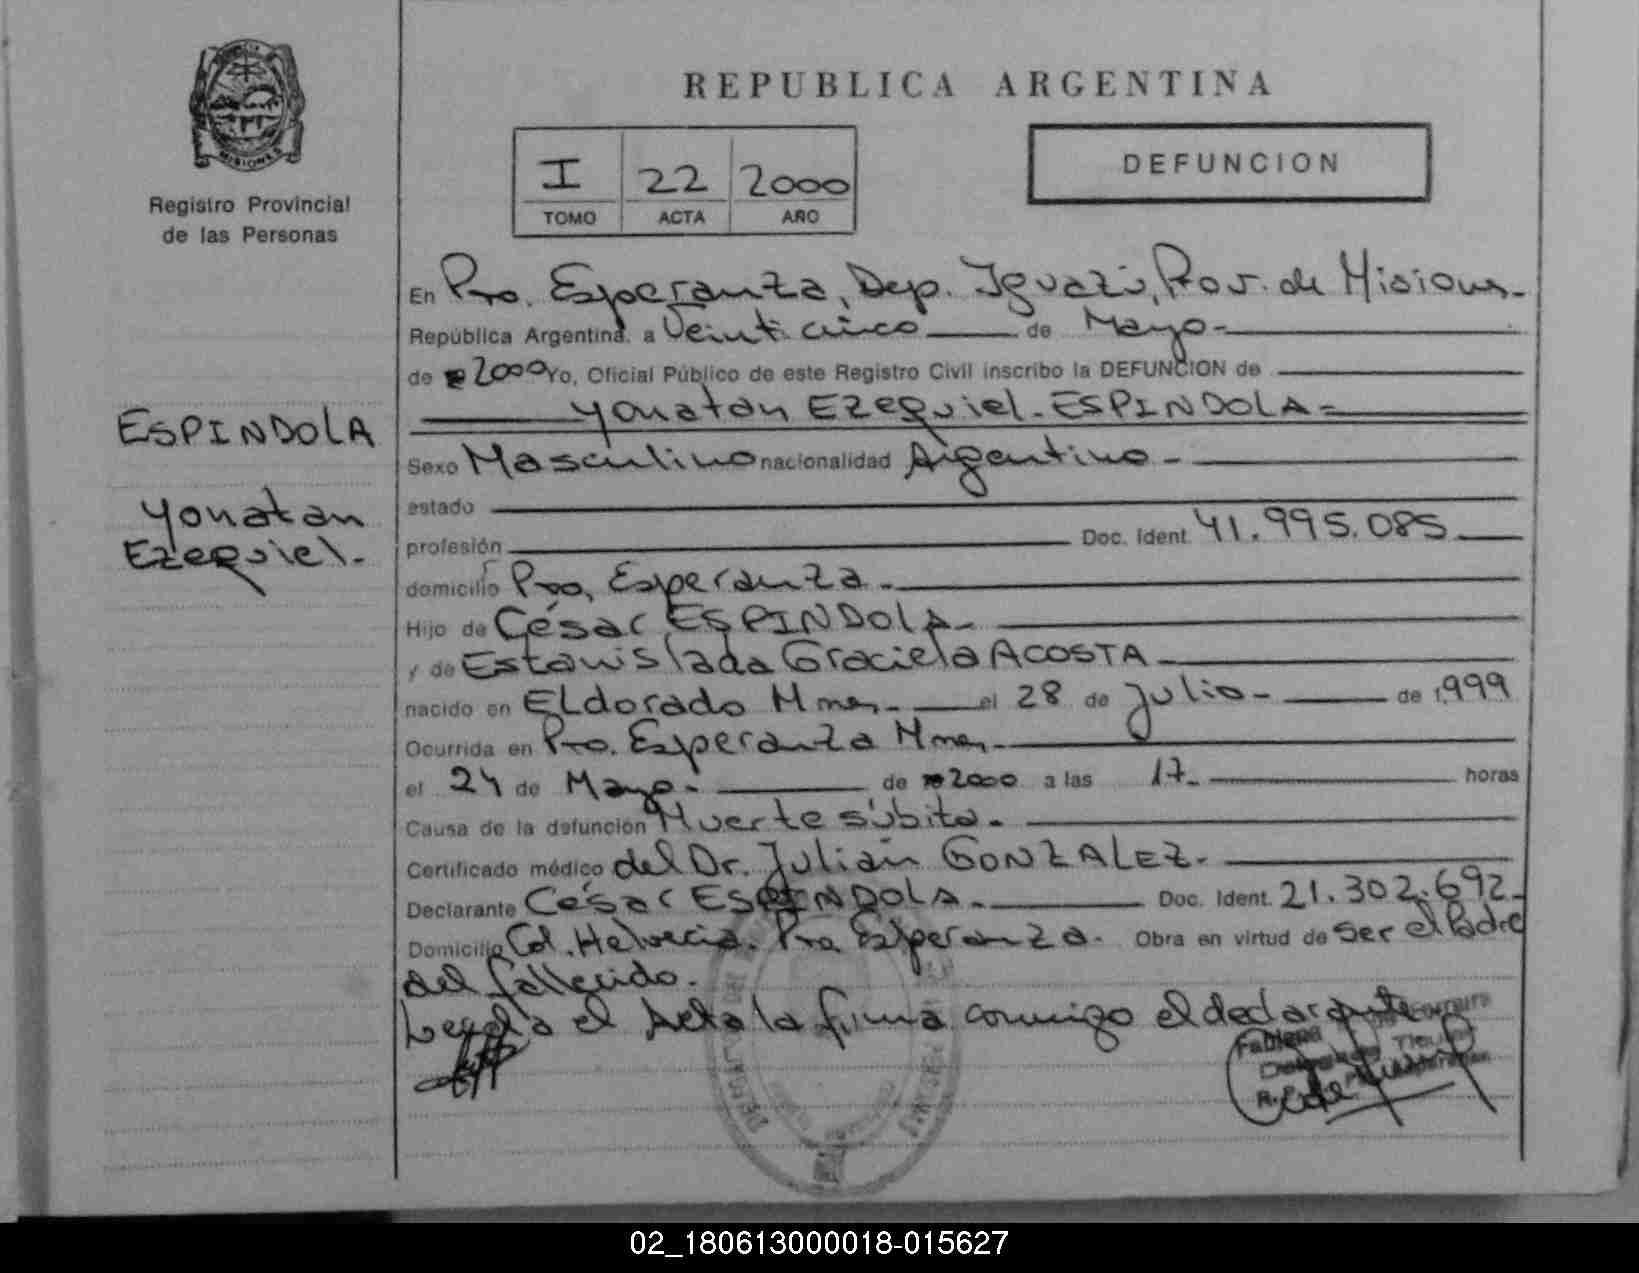 MISIONES
Registro Provincial
de las Personas
ESPINDOLA
Yonatan
Ezequiel.
REPUBLICA ARGENTINA
I 22 2000
TOMO ACTA AÑO
DEFUNCION
En Pto. Esperanza, Dep. Iguazú, Prov. de Misiones.
República Argentina, a Veinticinco de Mayo.-
de 2000 Yo, Oficial Público de este Registro Civil inscribo la DEFUNCION de
Yonatan Ezequiel. ESPINDOLA=
Sexo Masculino nacionalidad Argentino.-
estado
profesión Doc. Ident. 41.995.085.
domicilio Pto, Esperanza.
Hijo de César ESPINDOLA.
y de Estanislada Graciela ACOSTA.
nacido en ELdorado Mnes. el 28 de Julio.- de 1.999
Ocurrida en Pto. Esperanza Mnes.
el 24 de Mayo.- de 2000 a las 17. horas
Causa de la defunción Muerte súbita.
Certificado médico del Dr. Julián GONZALEZ.
Declarante César ESPINDOLA. Doc. Ident. 21.302.692
Domicilio Col. Helvecia. Pto Esperanza. Obra en virtud de ser el Padre
del fallecido.
Leyda el Acta la firma conmigo el declarante
02_180613000018-015627